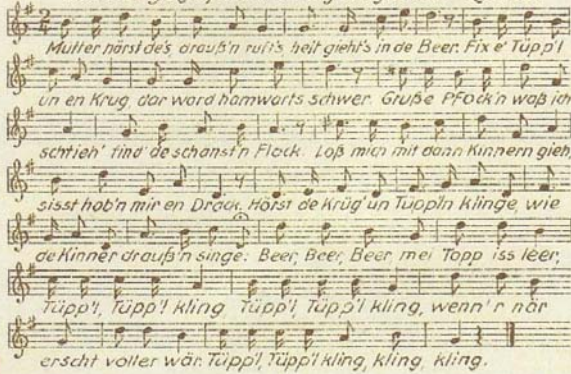 Mutter hörst de's drauß'n ruft's heit gieht's in de Beer. Fix e' Tüpp'l
un en Krug, dar word hamwarts schwer. Gruße Pfock'n waß ich
schtieh' find' de schanst'n Flack. Loß mich mit dann Kinnern gieh,
sisst hob'n mir en Drack. Hörst de Krüg' un Tuppl'n klinge, wie
de Kinner drauß'n singe: Beer, Beer, Beer mei Topp iss leer,
Tüpp'l, Tüpp'l kling, Tüpp'l, Tüpp'l kling, wenn' r när
erscht voller wär. Tüpp'l, Tüpp'l kling, kling, kling.